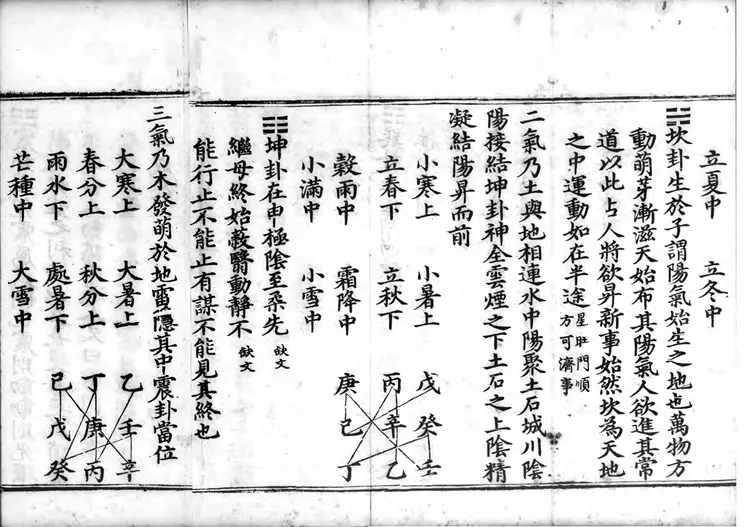 立夏中 立冬中
☵坎卦生於子謂陽氣始生之地也萬物方
動萌芽漸滋天始布其陽氣人欲進其常
道以此占人將欲昇新事始然坎為天地
之中運動如在半途 星旺門順
方可濟事
二氣乃土與地相連水中陽聚土石城川陰
陽接結坤卦神全雲煙之下土石之上陰精
凝結陽昇而前
小寒上 小暑上 戊 癸 壬
立春下 立秋下 丙 辛 乙
穀雨中 霜降中 庚 己 丁
小滿中 小雪中
☷坤卦在申極陰至柔先 缺文
繼母終始蔽翳動靜不 缺文
能行止不能止有謀不能見其終也
三氣乃木發萌於地雷隱其中震卦當位
大寒上 大暑上 乙 壬 辛
春分上 秋分上 丁 庚 丙
雨水下 處暑下 己 戊 癸
芒種中 大雪中